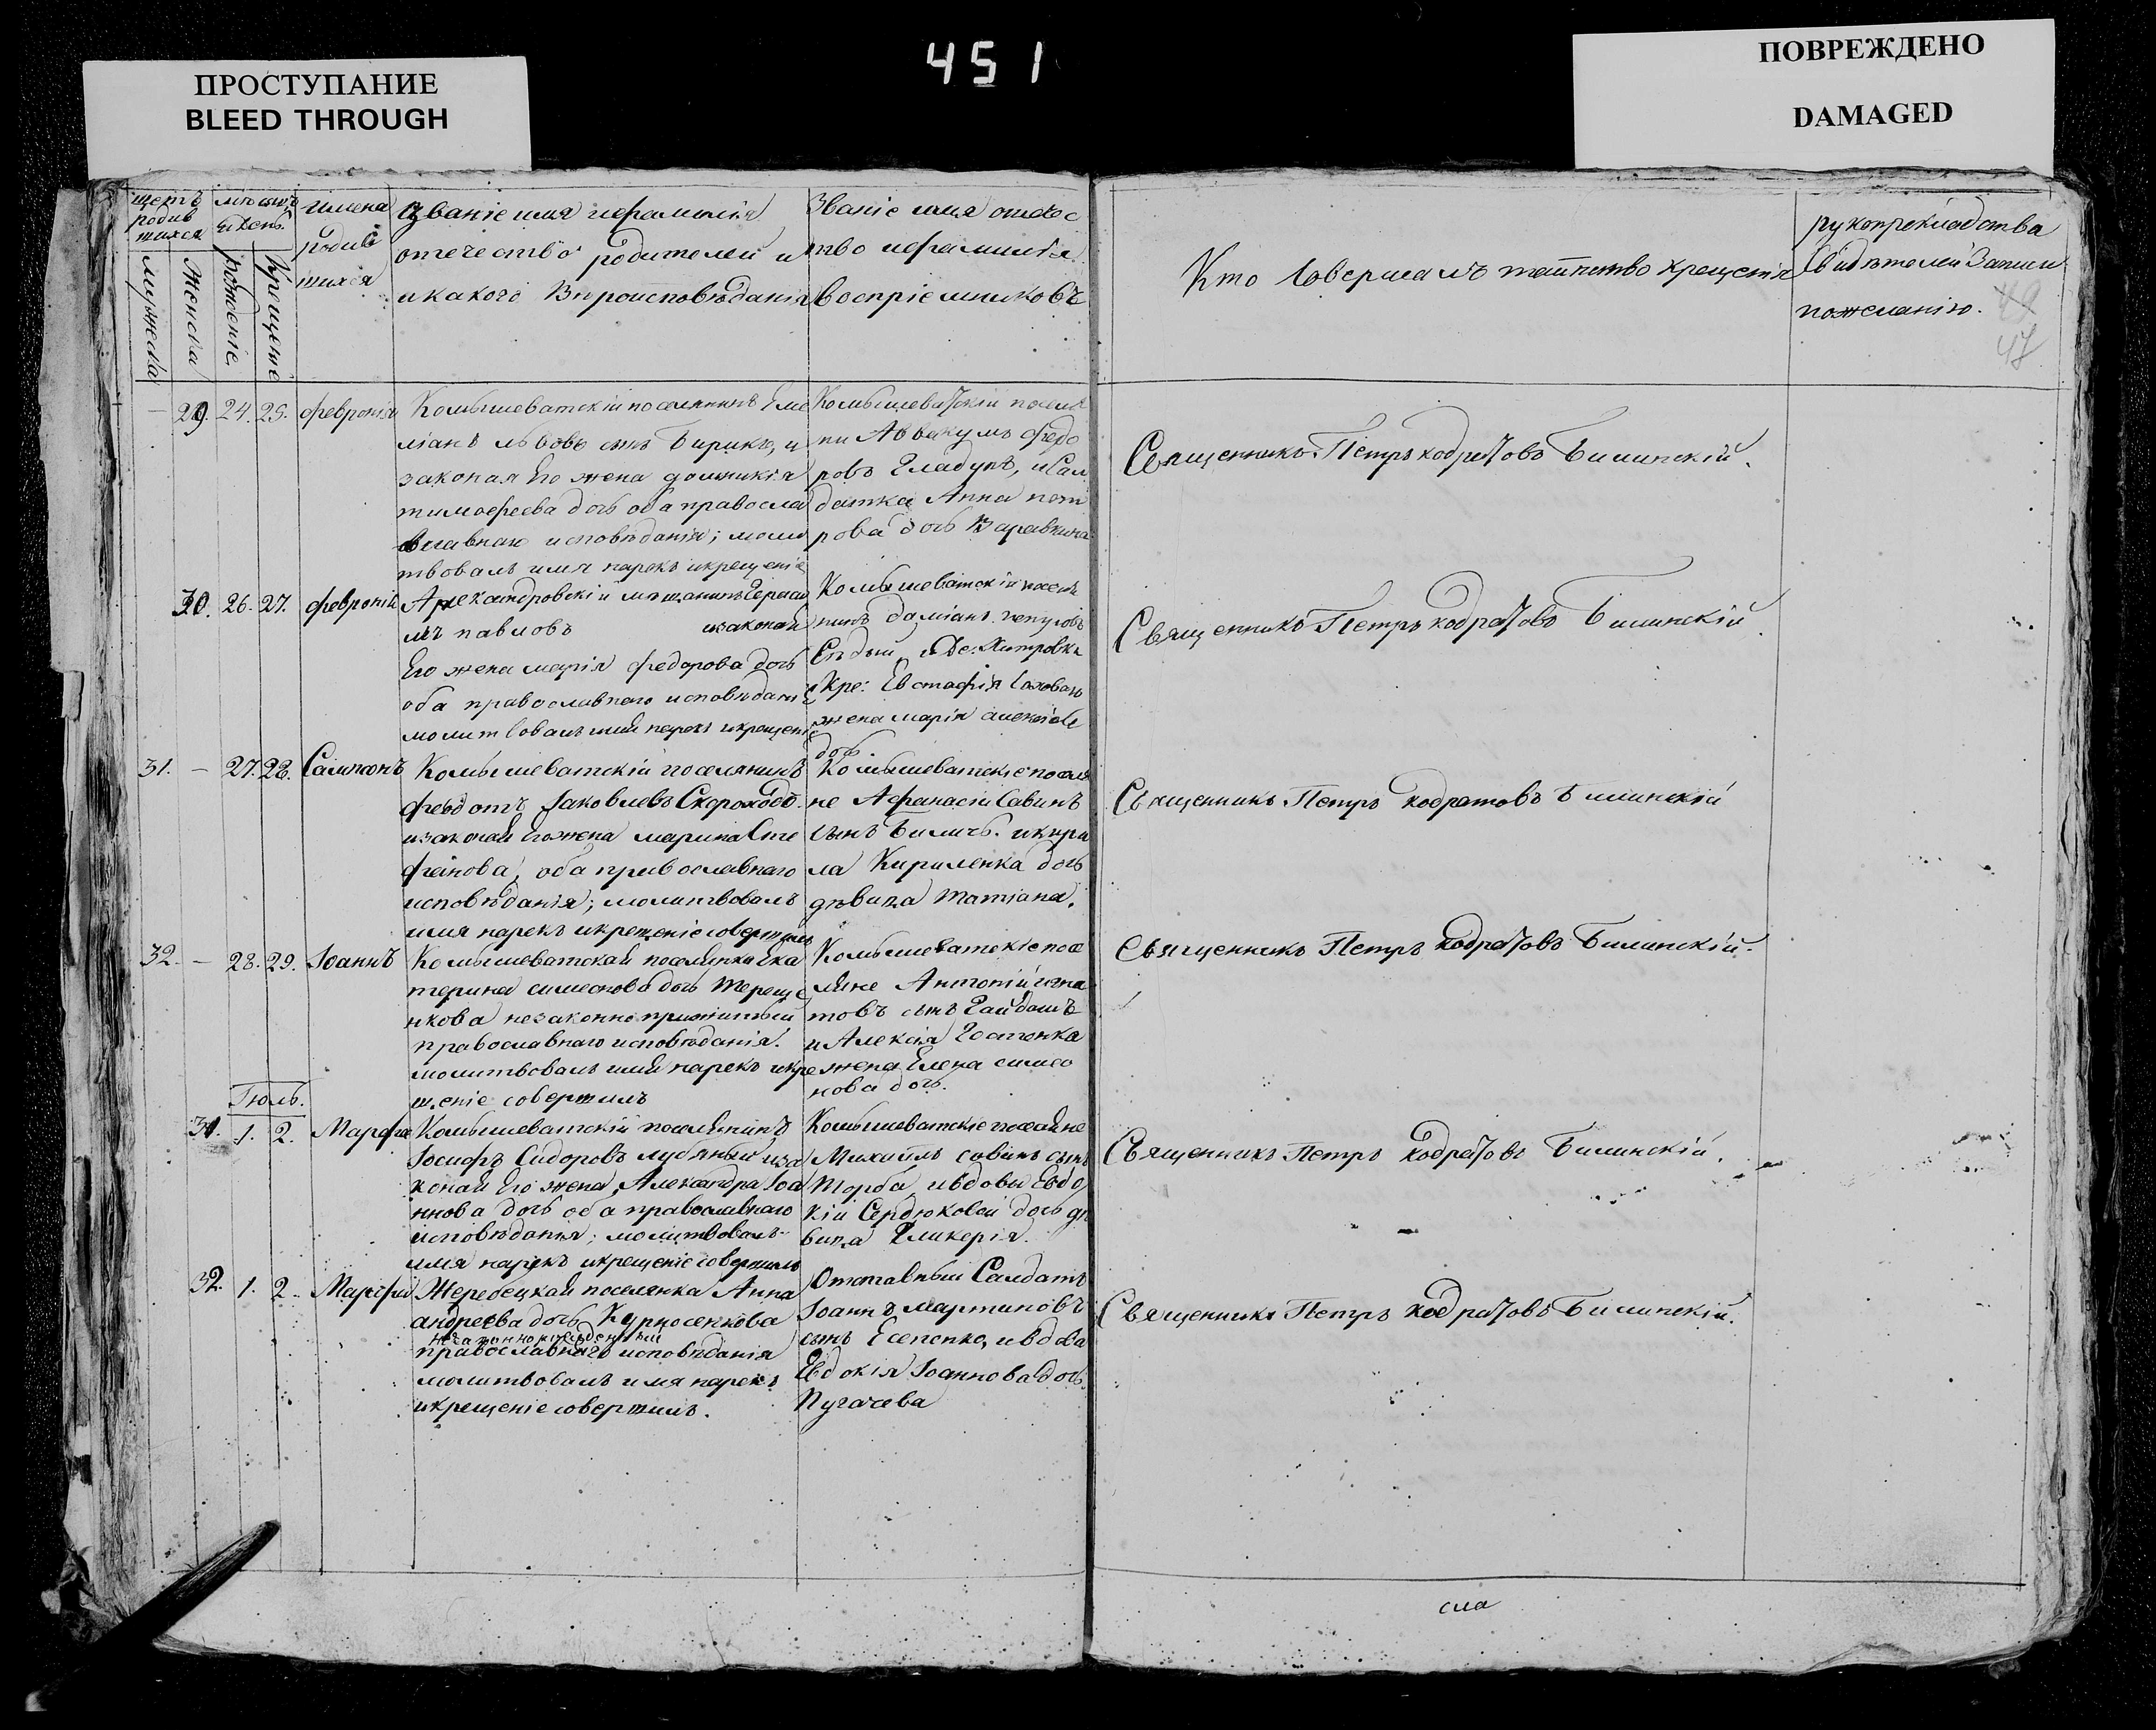 451
ПРОСТУПАНИЕ
BLEED THROUGH
ПОВРЕЖДЕНО
DAMAGED
щетъ родив шихся
мужеска
женска
рождение
Крещение
имена родив шихся
Званіе имя ифамилія
отечество родителей и
икакого Вѣроисповѣданія
Званіе имя отечес
тво ифамилія
воспріемниковъ
Кто Совершалъ таинство крещенія
рукоприкладства
Свидѣтелей Записи
пожеланію.
47
29. 24. 25. Февронія
Комышеватскій поселянинъ Еме
ліанъ Львовъ сынъ Бирикъ, и
законая Его жена домникія
тимофеева дочь оба правосла
вславнаго исповѣданія; моли
твовалъ имя нарекъ икрещеніе
Комышеватскій поселя
ни Аввакумъ Федо
ровъ Гладунъ, и Сал
датка Анна пет
рова дочь
Священникъ Петръ кодратовъ Билинскій.
30. 26. 27. Февроній
Александровскій мѣщанинъ Гераси
мъ павловъ изаконая
Его жена марія федорова дочь
оба православнаго исповѣданіе
молитвовалъ имя нарекъ икрещеніе
Комышеватскій поселя
нинъ даміанъ
Кре: Евстафія
жена марія алексіева
дочь.
Священникъ Петръ кодратовъ Билинскій
31. – 27. 28. Сампсонъ
Комышеватскій поселянинъ
феодотъ Іаковлевъ Скороходъ
изаконая Егожена марина Сте
фанова, оба православнаго
исповѣданія; молитвовалъ
имя нарекъ икрещеніе совершилъ
Комышеватскіе поселя
не Афанасій Савинъ
сынъ Биличь. икири
ла Кириленка дочь
дѣвица татіана.
Священникъ Петръ кодратовъ Билинскій
32. – 28. 29. Іоаннъ
Комышеватская поселянка Ека
терина симеонова дочь Тереще
нкова незаконно прижитый
православнаго исповѣданія.
молитвовалъ имя нарекъ икре
щеніе совершилъ
Комышеватскіе посе
ляне Антоній игна
товъ сынъ Гайдашъ
и Алексія Костенка
жена Елена симео
нова дочь.
Священникъ Петръ кодратовъ Билинскій.
Іюль.
31. 1. 2. Марфа
Комышеватскій поселянинъ
Іосифъ Сидоровъ луб'яный иза
коная Его жена, Александра Іоа
ннова дочь оба православнаго
исповѣданія; молитвовалъ
имя нарекъ икрещеніе совершилъ
Комышеватскіе поселяне
Михаилъ савинъ сынъ
Торба ивдовы Евдо
кіи Сердюковой дочь дѣ
вица Гликерія.
Священникъ Петръ кодратовъ Билинскій.
32. 1. 2. Марфа
Жеребецкая поселянка Анна
андреева дочь Курносенкова
незаконнорожденный
православнаго исповѣданія
молитвовалъ имя нарекъ
икрещеніе совершилъ.
Отставный Салдатъ
Іоаннъ мартиновъ
сынъ Есепенко, ивдова
Евдокія Іоаннова дочь
Пугачева
Священникъ Петръ кодратовъ Билинскій.
сла